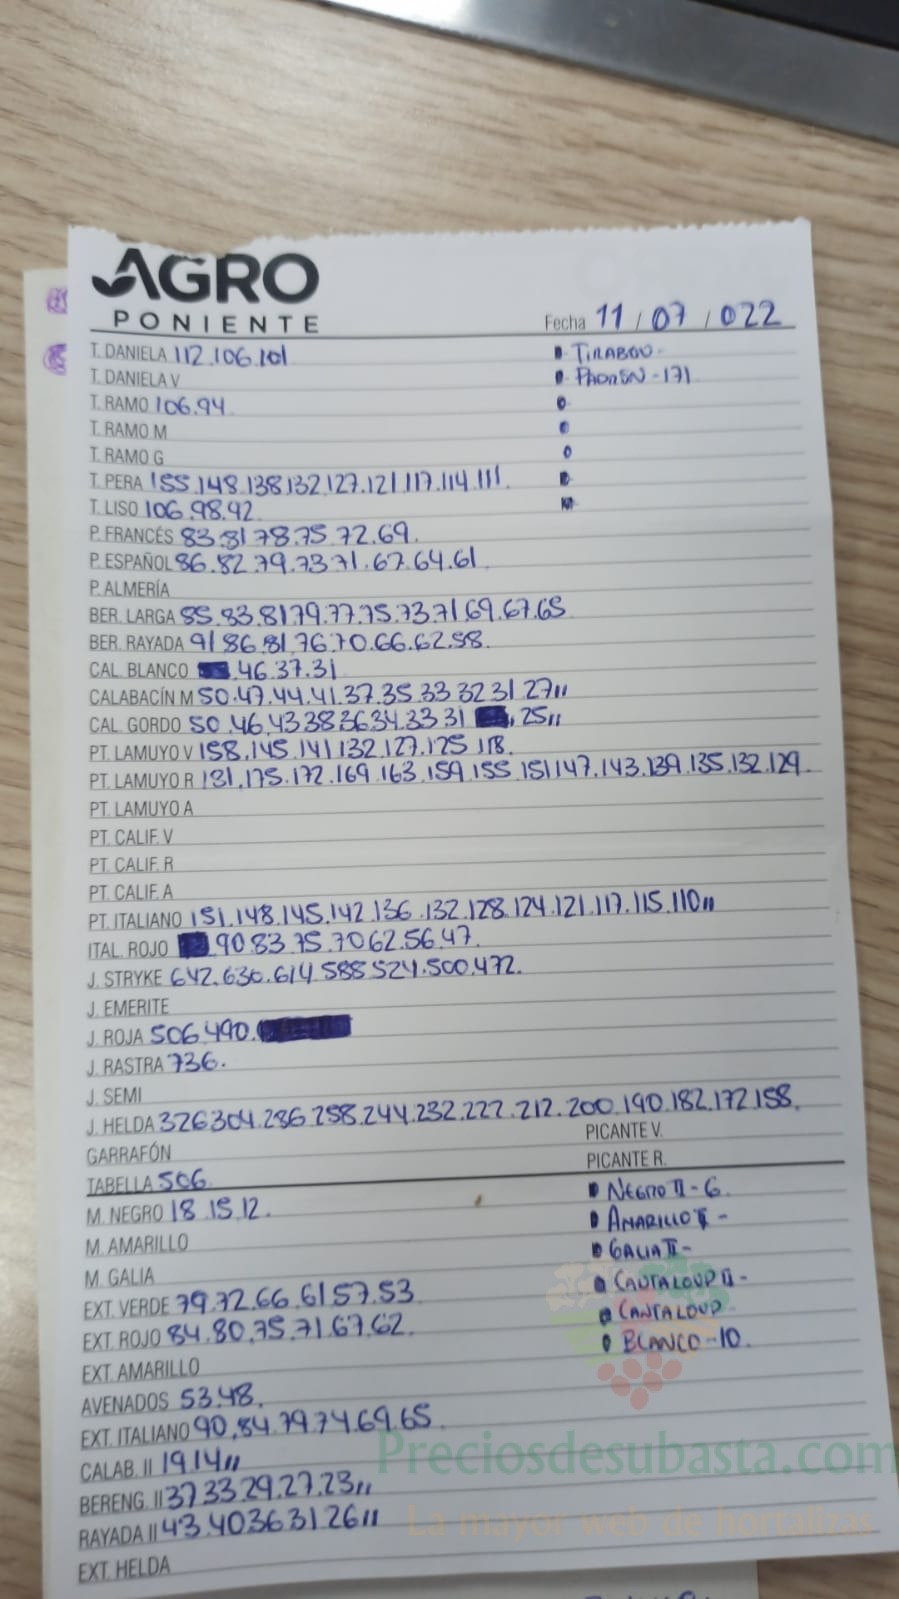 AGRO
PONIENTE
Fecha 11/07/022
T. DANIELA 112.106.101
TIRABOU-
T. DANIELA V
PADRON-171
T. RAMO 106.94
T. RAMO M
T. RAMO G
T. PERA 155.148.138.132.127.121.117.114.111.
T. LISO 106.98.92
P. FRANCÉS 83.81.78.75.72.69.
P. ESPAÑOL 86.82.79.73.71.67.64.61
P. ALMERÍA
BER. LARGA 85.83.81.79.77.75.73.71.69.67.65
BER. RAYADA 91.86.81.76.70.66.62.58.
CAL. BLANCO .46.37.31
CALABACÍN M 50.47.44.41.37.35.33.32.31.27,,
CAL. GORDO 50.46.43.38.36.34.33.31 ,25,,
PT. LAMUYO V 158.145.141.132.127.125.118.
PT. LAMUYO R 181.175.172.169.163.159.155.151.147.143.139.135.132.129.
PT. LAMUYO A
PT. CALIF. V
PT. CALIF. R
PT. CALIF. A
PT. ITALIANO 151.148.145.142.136.132.128.124.121.117.115.110,,
ITAL. ROJO .90.83.75.70.62.56.47.
J. STRYKE 642.630.614.588.524.500.472.
J. EMERITE
J. ROJA 506.490.
J. RASTRA 736.
J. SEMI
J. HELDA 326.304.286.258.244.232.222.212.200.190.182.172.158.
PICANTE V.
GARRAFÓN
PICANTE R.
TABELLA 506
NEGRO II-6.
M. NEGRO 18.15.12.
AMARILLO II-
M. AMARILLO
GALIA II-
M. GALIA
CANTALOUP II-
EXT. VERDE 79.72.66.61.57.53
CANTALOUP
EXT. ROJO 84.80.75.71.67.62.
BLANCO-10.
EXT. AMARILLO
AVENADOS 53.48.
EXT. ITALIANO 90.84.79.74.69.65.
CALAB. II 19.14,,
Preciosdesubasta.com
BERENG. II 37.33.29.27.23,,
RAYADA II 43.40.36.31.26,,
La mayor web de hortalizas
EXT. HELDA